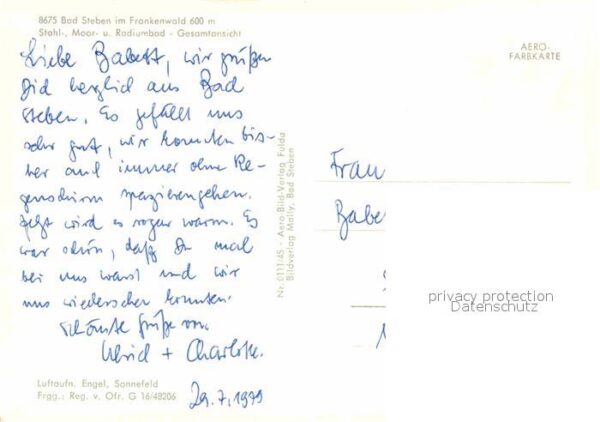 8675 Bad Steben im Frankenwald 600 m
Stahl-, Moor- u. Radiumbad - Gesamtansicht
AERO-
FARBKARTE
Liebe Babett, wir grüßen
Dich herzlich aus Bad
Steben. Es gefällt uns
sehr gut, wir konnten bis-
her auch immer ohne Re-
genschirm spazierengehen.
Jetzt wird es sogar warm. Es
war schön, daß Du mal
bei uns warst und wir
uns wiedersehen konnten.
Schönste Grüße von
Ulrich + Charlotte.
29.7.1979
Luftaufn. Engel, Sonnefeld
Frgg.: Reg. v. Ofr. G 16/48206
Nr. 0111/45 - Aero-Bild-Verlag Fulda
Bildverlag Mally, Bad Steben
Frau
Babe
privacy protection
Datenschutz